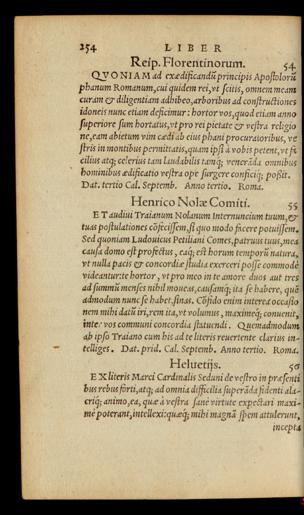 254 LIBER
Reip. Florentinorum. 54
QVONIAM ad exædificandũ principis Apostolorũ
phanum Romanum, cui quidem rei, vt scitis, omnem meam
curam & diligentiam adhibeo, arboribus ad constructiones
idoneis nunc etiam deficimur: hortor vos, quod etiam anno
superiore sum hortatus, vt pro rei pietate & vestra religio
ne, eam abietum vim cædi ab eius phani procuratoribus, ve
stris in montibus permittatis, quam ipsi à vobis petent, vt fa
cilius atq; celerius tam laudabilis tamq; venerãda omnibus
hominibus ædificatio vestra ope surgere conficiq; possit.
Dat. tertio Cal. Septemb. Anno tertio. Roma.
Henrico Nolæ Comiti. 55
ET audiui Traianum Nolanum Internuncium tuum, &
tuas postulationes cõfecissem, si quo modo ficere potuissem.
Sed quoniam Ludouicus Petiliani Comes, patruus tuus, mea
causa domo est profectus, eaq; est horum temporũ natura,
vt nulla pacis & concordiæ studia exerceri posse commodè
videantur: te hortor, vt pro meo in te amore duos aut tres
ad summũ menses nihil moueas, causamq; ita se habere, quẽ
admodum nunc se habet, sinas. Cõfido enim interea occasio
nem mihi datũ iri, rem ita, vt volumus, maximeq; conuenit,
inter vos communi concordia statuendi. Quemadmodum
ab ipso Traiano cum his ad te literis reuertente clarius in-
telliges. Dat. prid. Cal. Septemb. Anno tertio. Roma.
Heluetijs. 56
EX literis Marci Cardinalis Seduni de vestro in præsenti
bus rebus forti, atq; ad omnia difficilia superãda fidenti ala-
criq; animo, ea, quæ à vestra sanè virtute expectari maxi-
mè poterant, intellexi: quæq; mihi magnã spem attulerunt,
incepta